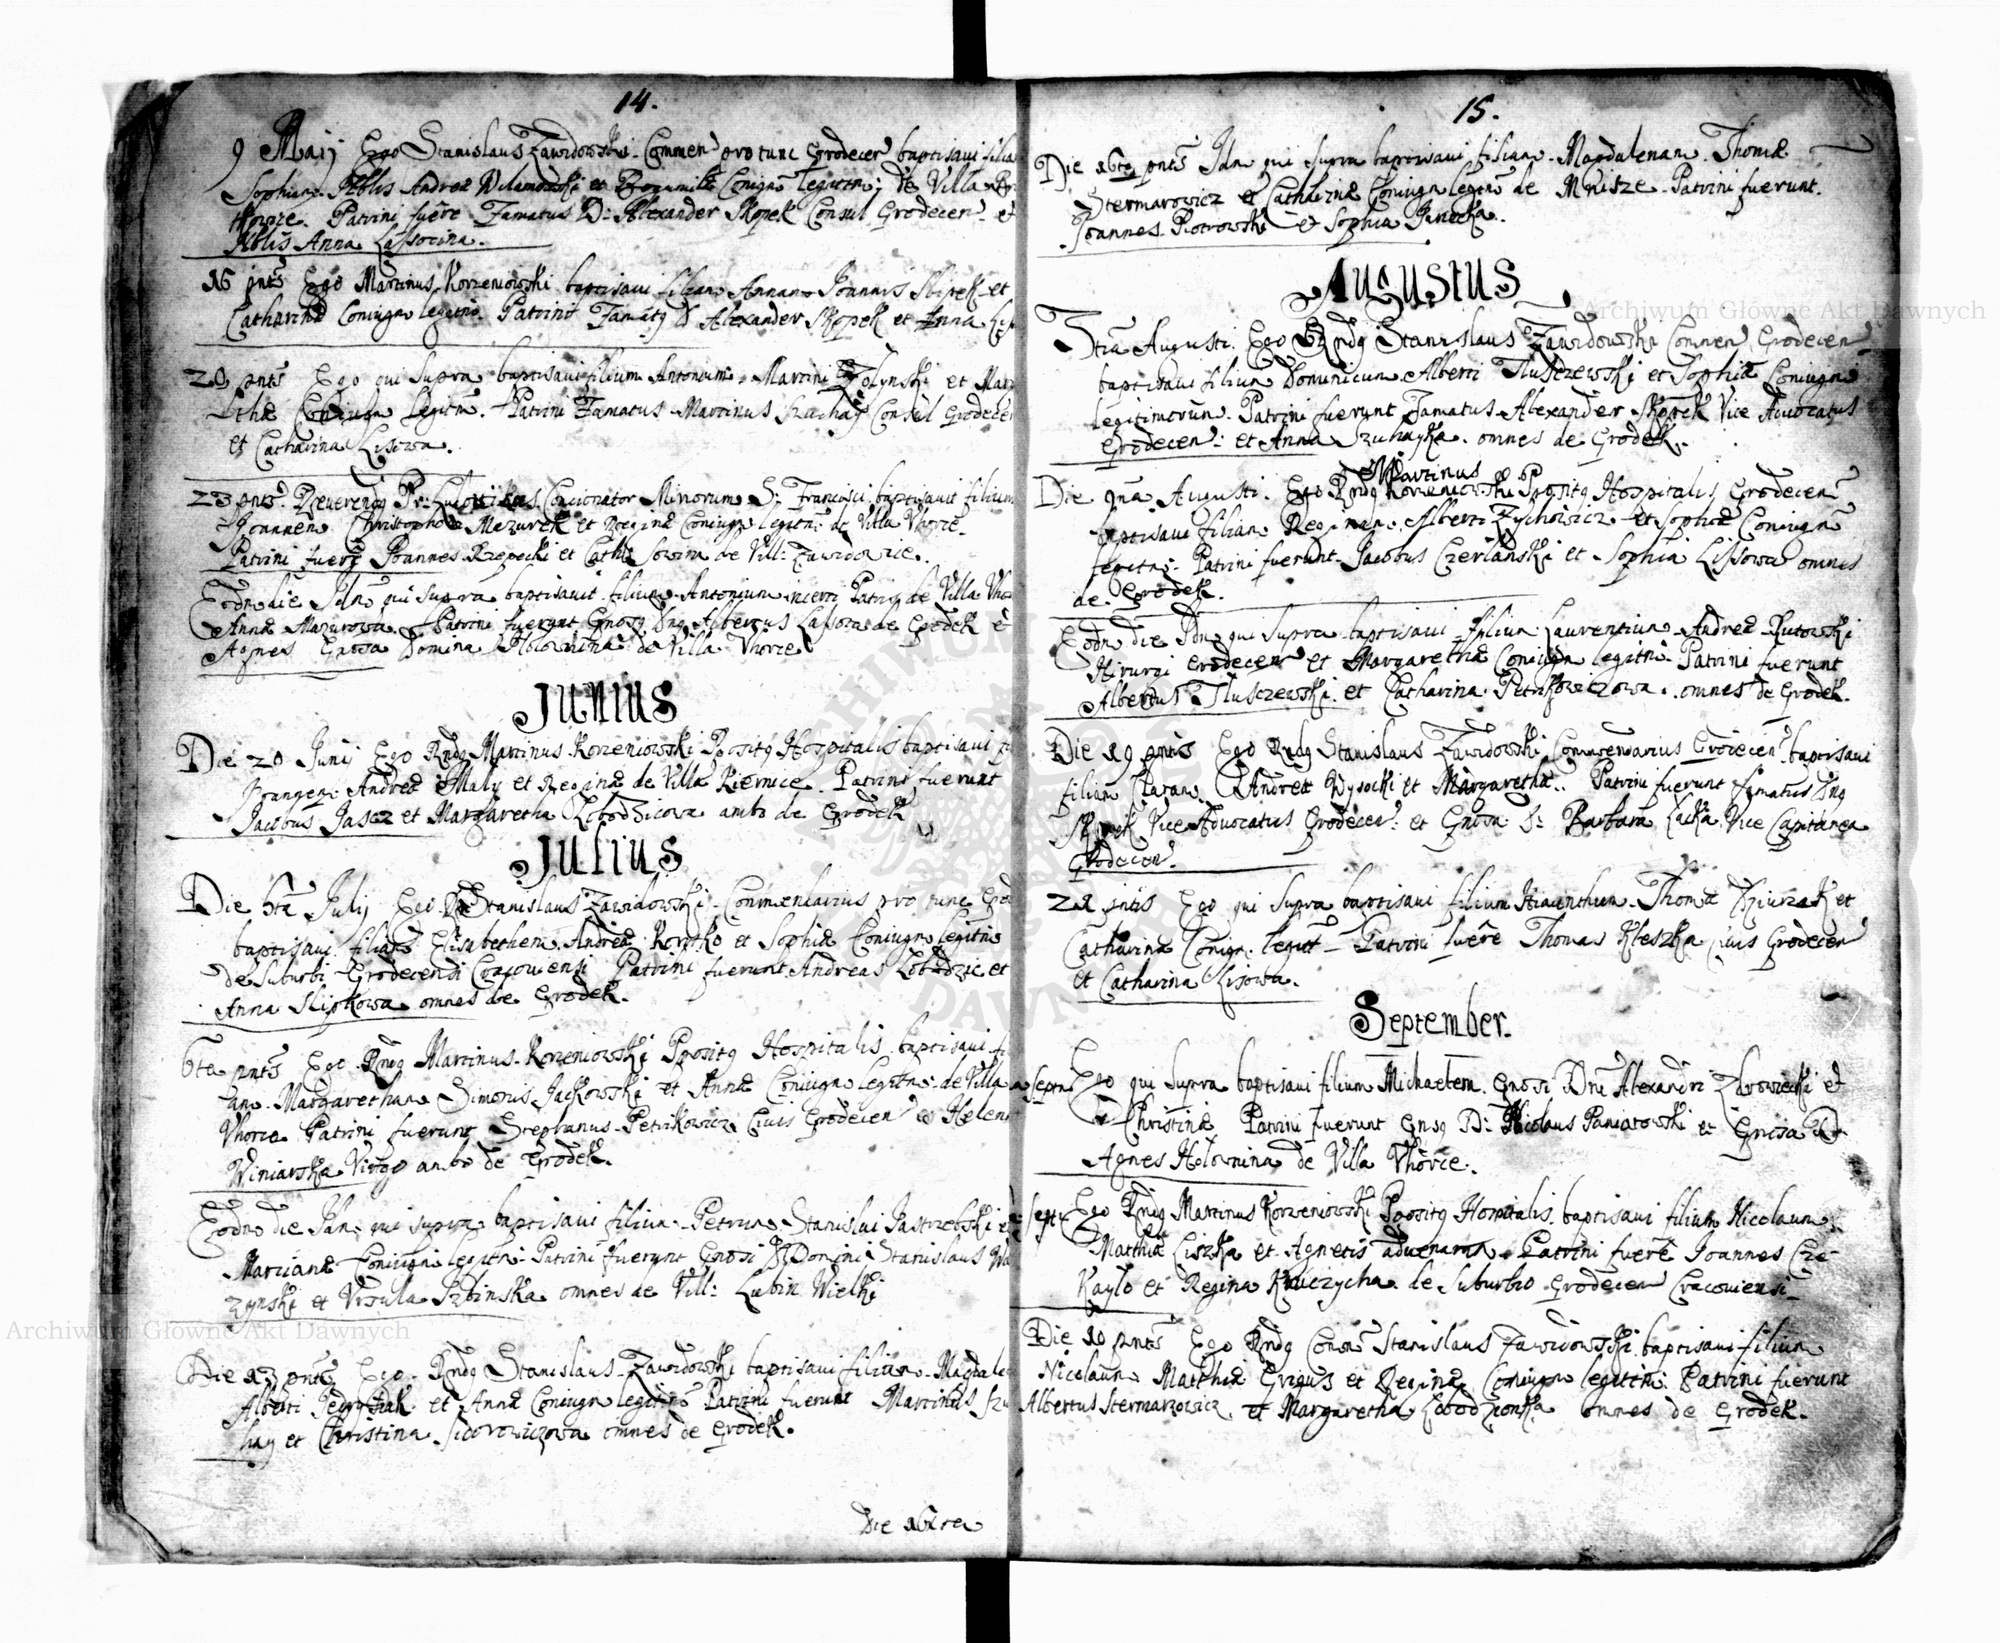 14.
9 Maij Ego Stanislaus Zawidowski Commen pro tunc Grodecen baptisavi filia
Sophiam Nblis Andreæ Wilamowski et Bogumilæ Coniugu Legitim: de Villa
Patrini fuere Famatus D: Alexander Skopek Consul Grodecen et
Nblis Anna Lassocina.
16 pnts Ego Martinus Korzeniowski baptisavi filiam Annam Joannis Slipek et
Catharinæ Coniugu legitim. Patrini Famatq D Alexander Skopek et Anna
20 pnts Ego qui supra baptisavi filium Antonium Martini Zolynski et
Coniugu Legitim. Patrini Famatus Martinus Szuchay Consul Grodecen
et Catharina Lisowa.
23 pnts. Reverendq Pr: Concionator Minorum S: Francisci baptisavit filium
Joannem Christophori Mazurek et Reginæ Coniugu legitm: de Villa Vhorce.
Patrini fuere Joannes Rzepecki et Cath: de Vill: Zawidowice.
Eodm die Idm qui supra baptisavit filium Antonium incerti Patris de Villa Vho
Annæ Mazurowa. Patrini fuerunt Gnosq Dnq Albertus Lassota de Grodek et
Agnes Gnosa Domina Holownina de Villa Vhorce
JUNIUS
Die 20 Junij Ego Rndq Martinus Korzeniowski Ppositq Hospitalis baptisavi
Andreæ Maly et Reginæ de Villa Kiernice. Patrini fuerunt
Jacobus Jasez et Margaretha Lobodzicowa ambo de Grodek
JULIUS
Die 5ta July Ego Stanislaus Zawidowski Commendarius pro tunc Grod
baptisavi filiam Elisabetham Andreæ Korytko et Sophiæ Coniugu legitim
de Suburbi Grodecensi Cracoviensi Patrini fuerunt Andreas Lobodzic et
Anna Slipkowa omnes de Grodek.
6ta pnts Ego Rndq Martinus Korzeniowski Ppositq Hospitalis baptisavi fi
am Margaretham Simonis Jackowski et Annæ Coniugu legitm: de Villa
Vhorce Patrini fuerunt Stephanus Petrikowicz Civis Grodecen et Helena
Winiarska Virgo ambo de Grodek.
Eodm die Idm qui supra baptisavi filium Petrum Stanislai Jastrzebski et
Marianæ Coniugu legitm: Patrini fuerunt Gnosi D Domini Stanislaus
zynski et Ursula omnes de Vill: Lubin Wielki
Die 13 pnts Ego Rndq Stanislaus Zawidowski baptisavi filiam Magdale
Alberti et Annæ Coniugu legitim Patrini fuerunt Martinus Szu
hay et Christina Sidorowiczowa omnes de Grodek.
Die 16
15.
Die 16ta pnts Idm qui supra baptisavi filiam Magdalenam Thomæ
Stermarowicz et Catharinæ Coniugu legitm de Mnisze Patrini fuerunt
Joannes Piotrowski et Sophia Janocka.
AUGUSTUS
3tia Augusti Ego Rndq Stanislaus Zawidowski Commen Grodecen
baptisavi filium Dominicum Alberti Tlusczewski et Sophiæ Coniugu
legitimorum. Patrini fuerunt Famatus Alexander Skopek Vice Advocatus
Grodecen: et Anna Szuhayka omnes de Grodek.
Martinus
Die 9na Augusti Ego Rndq Korzeniowski Ppositq Hospitalis Grodecen
baptisavi filiam Reginam Alberti Zychowicz et Sophiæ Coniugu
legitm: Patrini fuerunt Jacobus Czerlanski et Sophia Lissowa omnes
de Grodek.
Eodm die Idm qui supra baptisavi filium Laurentium Andreæ Rutowski
Hirurgi Grodecen et Margarethæ Coniugu legitm: Patrini fuerunt
Albertus Tlusczewski et Catharina Petrikowiczowa omnes de Grodek.
Die 19 pntis Ego Rndq Stanislaus Zawidowski Commendarius Grodecen baptisavi
filiam Claram Andreæ Wysocki et Margarethæ. Patrini fuerunt Famatus Dnq
Skopek Vice Advocatus Grodecen: et Gnosa D: Barbara Lacka Vice Capitanea
Grodecen.
21 pntis Ego qui supra baptisavi filium Hiacinthum Thomæ et
Catharinæ Coniugu legit Patrini fuere Thomas Kleszka Civis Grodecen
et Catharina Lisowa.
September.
Septm Ego qui supra baptisavi filium Michaelem Gnosi Dni Alexandri Zdrowiecki et
Christinæ Patrini fuerunt Gnosq D: Nicolaus Paniatowski et Gnosa D
Agnes Holownina de Villa Vhorce.
Sept Ego Rndq Martinus Korzeniowski Ppositq Hospitalis baptisavi filium Nicolaum
Matthiæ Liszka et Agnetis advenarum Patrini fuere Joannes Cze
Kaylo et Regina Krawczycha de Suburbio Grodecen Cracoviensi
Die 10 pnts Ego Rndq Comm Stanislaus Zawidowski baptisavi filium
Nicolaum Matthiæ Grigus et Reginæ Coniugu legitm: Patrini fuerunt
Albertus Stermarzowicz et Margaretha Lobodzionka omnes de Grodek.
Archiwum Główne Akt Dawnych
Archiwum Główne Akt Dawnych